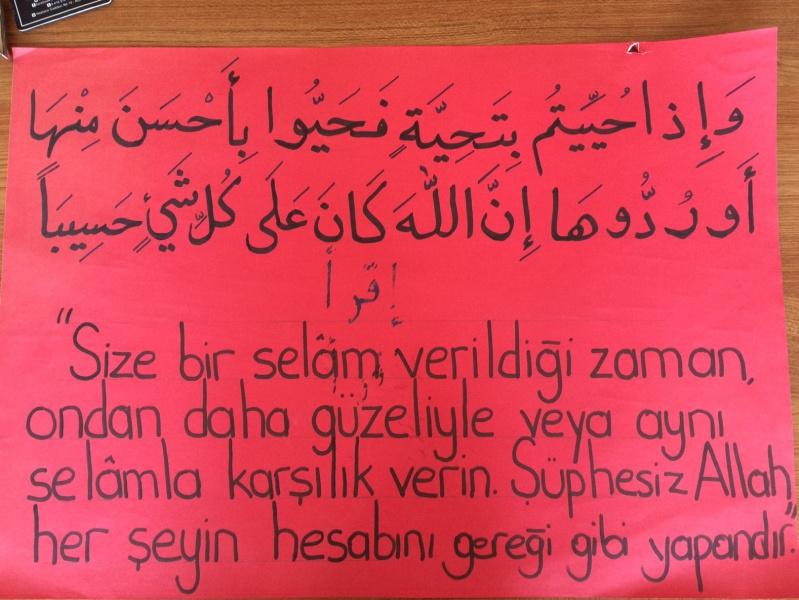 وَإِذا حُيِّيتُم بِتَحِيَّةٍ فَحَيُّوا بِأَحْسَنَ مِنْهَا
أَو رُدُّوهَا إِنَّ اللّٰهَ كَانَ عَلَى كُلِّ شَيْءٍ حَسِيبَاً
إقرأ
"Size bir selâm verildiği zaman,
ondan daha güzeliyle veya aynı
selâmla karşılık verin. Şüphesiz Allah,
her şeyin hesabını gereği gibi yapandır."